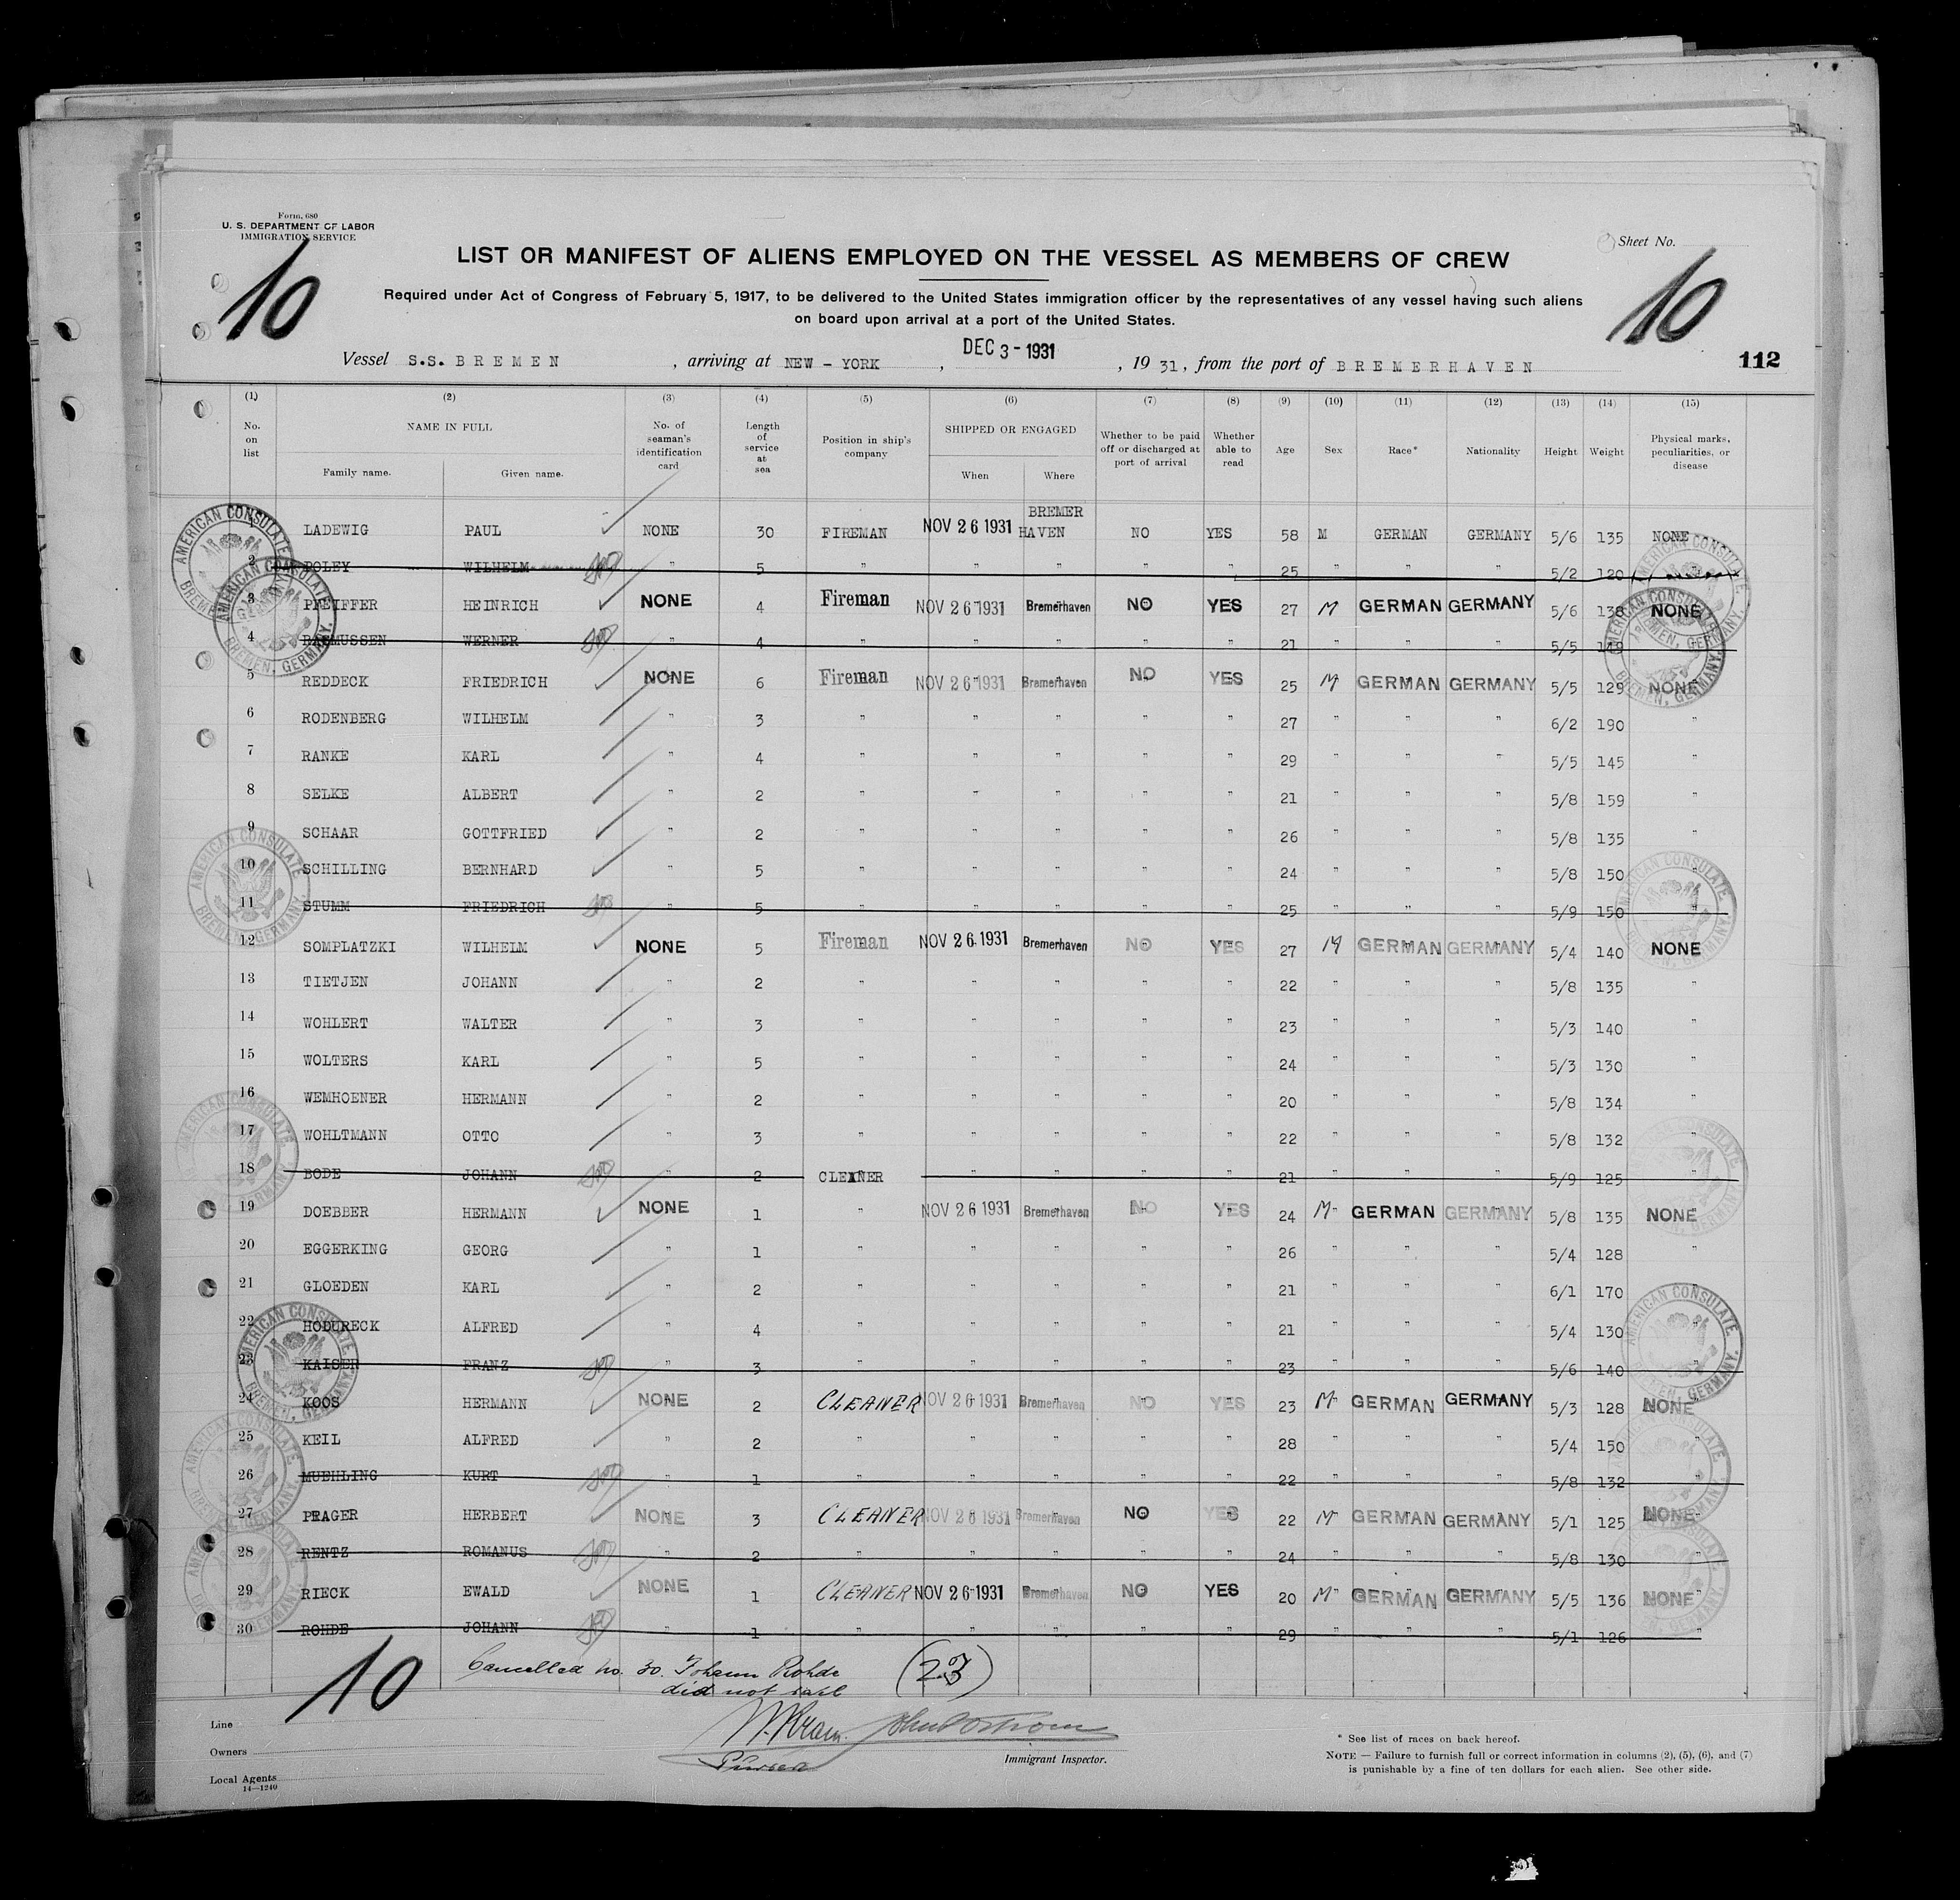 Form 680
U. S. DEPARTMENT OF LABOR
IMMIGRATION SERVICE
Sheet No.
10
10
LIST OR MANIFEST OF ALIENS EMPLOYED ON THE VESSEL AS MEMBERS OF CREW
Required under Act of Congress of February 5, 1917, to be delivered to the United States immigration officer by the representatives of any vessel having such aliens
on board upon arrival at a port of the United States.
Vessel S.S. BREMEN, arriving at NEW - YORK, DEC 3 - 1931, 19 31, from the port of BREMERHAVEN
112
(1) (2) (3) (4) (5) (6) (7) (8) (9) (10) (11) (12) (13) (14) (15)
No. on list NAME IN FULL Family name. Given name. No. of seaman's identification card Length of service at sea Position in ship's company SHIPPED OR ENGAGED When Where Whether to be paid off or discharged at port of arrival Whether able to read Age Sex Race* Nationality Height Weight Physical marks, peculiarities, or disease
1 LADEWIG PAUL NONE 30 FIREMAN NOV 26 1931 BREMER HAVEN NO YES 58 M GERMAN GERMANY 5/6 135 NONE
2 POLEY WILHELM " 5 " " " " " 25 " " " 5/2 120
3 PFEIFFER HEINRICH NONE 4 Fireman NOV 26 1931 Bremerhaven NO YES 27 M GERMAN GERMANY 5/6 138 NONE
4 RASMUSSEN WERNER 4 " " " " " 21 " " " 5/5 149
5 REDDECK FRIEDRICH NONE 6 Fireman NOV 26 1931 Bremerhaven NO YES 25 M GERMAN GERMANY 5/5 129 NONE
6 RODENBERG WILHELM " 3 " " " " " 27 " " " 6/2 190 "
7 RANKE KARL " 4 " " " " " 29 " " " 5/5 145 "
8 SELKE ALBERT " 2 " " " " " 21 " " " 5/8 159 "
9 SCHAAR GOTTFRIED " 2 " " " " " 26 " " " 5/8 135 "
10 SCHILLING BERNHARD " 5 " " " " " 24 " " " 5/8 150 "
11 STUMM FRIEDRICH " 5 " " " " " 25 " " " 5/9 150 "
12 SOMPLATZKI WILHELM NONE 5 Fireman NOV 26 1931 Bremerhaven NO YES 27 M GERMAN GERMANY 5/4 140 NONE
13 TIETJEN JOHANN " 2 " " " " " 22 " " " 5/8 135 "
14 WOHLERT WALTER " 3 " " " " " 23 " " " 5/3 140 "
15 WOLTERS KARL " 5 " " " " " 24 " " " 5/3 130 "
16 WEMHOENER HERMANN " 2 " " " " " 20 " " " 5/8 134 "
17 WOHLTMANN OTTO " 3 " " " " " 22 " " " 5/8 132 "
18 BODE JOHANN " 2 CLEANER " " " " 21 " " " 5/9 125 "
19 DOEBBER HERMANN NONE 1 " NOV 26 1931 Bremerhaven NO YES 24 M GERMAN GERMANY 5/8 135 NONE
20 EGGERKING GEORG " 1 " " " " " 26 " " " 5/4 128 "
21 GLOEDEN KARL " 2 " " " " " 21 " " " 6/1 170 "
22 HODURECK ALFRED " 4 " " " " " 21 " " " 5/4 130 "
23 KAISER FRANZ " 3 " " " " " 23 " " " 5/6 140 "
24 KOOS HERMANN NONE 2 CLEANER NOV 26 1931 Bremerhaven NO YES 23 M GERMAN GERMANY 5/3 128 NONE
25 KEIL ALFRED " 2 " " " " " 28 " " " 5/4 150 "
26 MUEHLING KURT " 1 " " " " " 22 " " " 5/8 132 "
27 PRAGER HERBERT NONE 3 CLEANER NOV 26 1931 Bremerhaven NO YES 22 M GERMAN GERMANY 5/1 125 NONE
28 RENTZ ROMANUS " 2 " " " " " 24 " " " 5/8 130 "
29 RIECK EWALD NONE 1 CLEANER NOV 26 1931 Bremerhaven NO YES 20 M GERMAN GERMANY 5/5 136 NONE
30 ROHDE JOHANN " 1 " " " " " 29 " " " 5/1 126 "
AMERICAN CONSULATE BREMEN, GERMANY.
10
Cancelled no. 30. Johann Rohde (23)
did not sail
Line
Owners
Local Agents
14—1240
Purser
Immigrant Inspector.
* See list of races on back hereof.
NOTE — Failure to furnish full or correct information in columns (2), (5), (6), and (7)
is punishable by a fine of ten dollars for each alien. See other side.